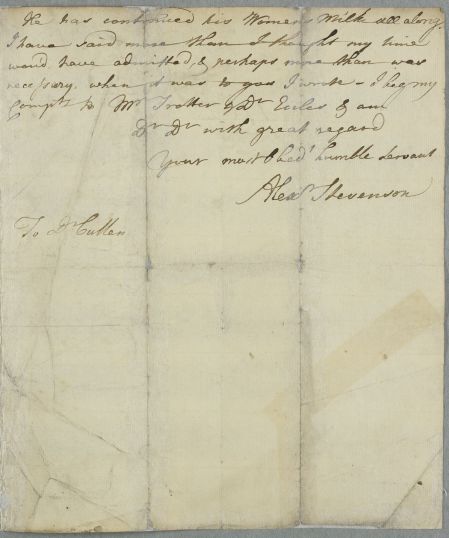 He has continued his Womens Milk all along.
I have said more than I thought my time
woud have admitted, & perhaps more than was
necessary, when it was to you I wrote - I beg my
Compts to Mr Trotter & Dr Eccles & am
Dr Dr with great regard
Your most Obedt humble Servant
Alexr Stevenson
To Dr Cullen